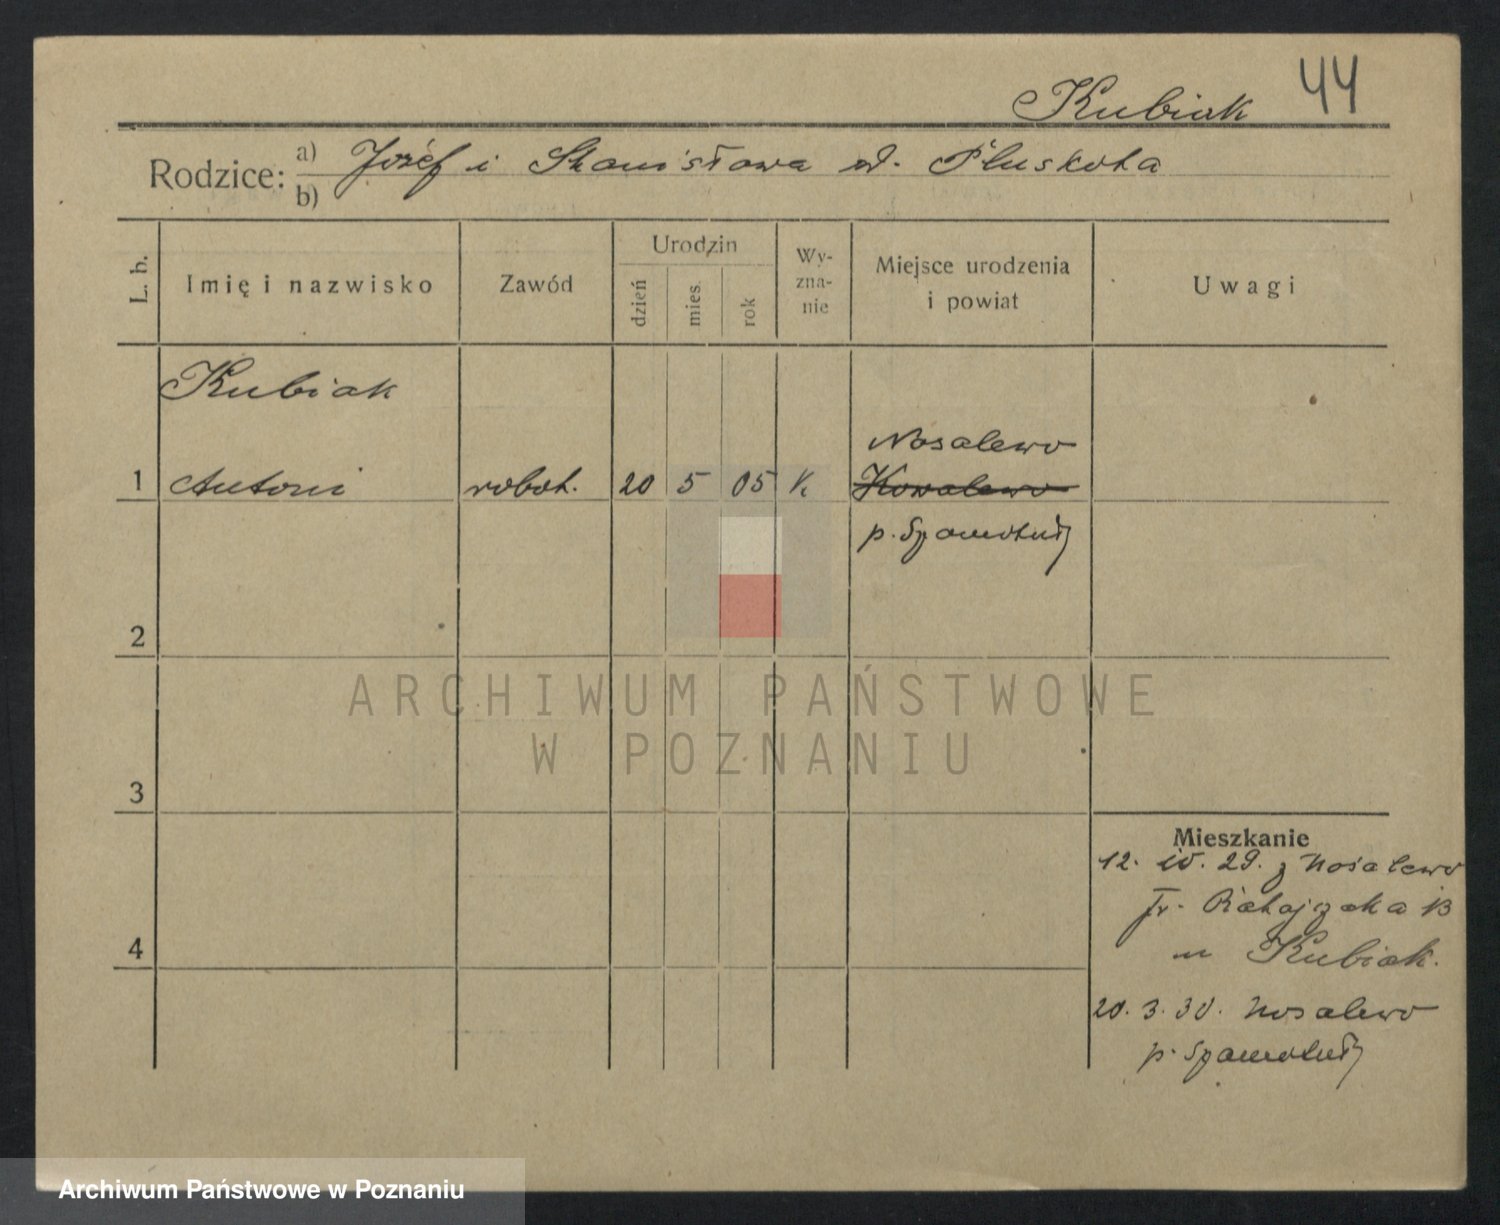 Kubiak 44
Rodzice: a) Józef i Stanisława d. Pluskota
b)
L. b. Imię i nazwisko Zawód Urodzin dzień mies. rok Wy-zna-nie Miejsce urodzenia i powiat Uwagi
Kubiak
Nosalewo
1 Antoni robot. 20 5 05 k. Kowalewo
p. Szamotuły
2
ARCHIWUM PAŃSTWOWE
W POZNANIU
3
Mieszkanie
12. IV. 29. z Nosalewo
Fr. Ratajczaka 13
u Kubiak.
4
20. 3. 30. Nosalewo
p. Szamotuły
Archiwum Państwowe w Poznaniu